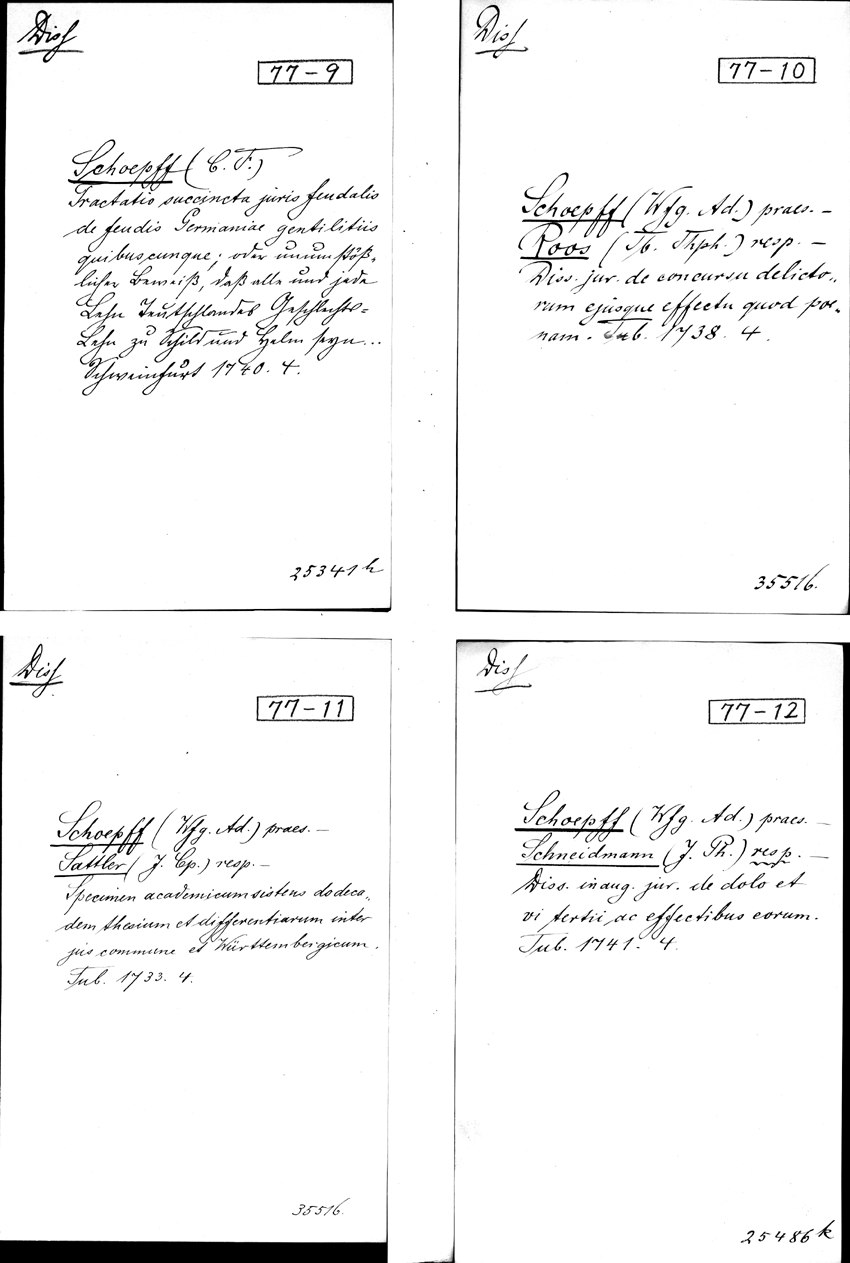 Diss
77-9
Schoepff (C. F.)
Tractatio succincta juris feudalis
de feudis Germaniae gentilitiis
quibuscunque; oder unumstöß-
licher Beweiß, daß alle und jede
Lehn Teutschlandes Geschlechts-
Lehn zu Schild und Helm seyn...
Schweinfurt 1740. 4.
25341 h
Diss
77-10
Schoepff (Wfg. Ad.) praes. —
Roos (Thph.) resp. —
Diss. jur. de concursu delicto-
rum ejusque effectu quod poe-
nam. Tub. 1738. 4.
35516.
Diss
77-11
Schoepff (Wfg. Ad.) praes. —
Sattler (J. Cp.) resp. —
Specimen academicum sistens dodeca-
dem thesium et differentiarum inter
jus commune et Württembergicum.
Tub. 1733. 4.
35516.
Diss
77-12
Schoepff (Wfg. Ad.) praes. —
Schneidmann (J. Th.) resp. —
Diss. inaug. jur. de dolo et
vi tertii ac effectibus eorum.
Tub. 1741. 4.
25486 k